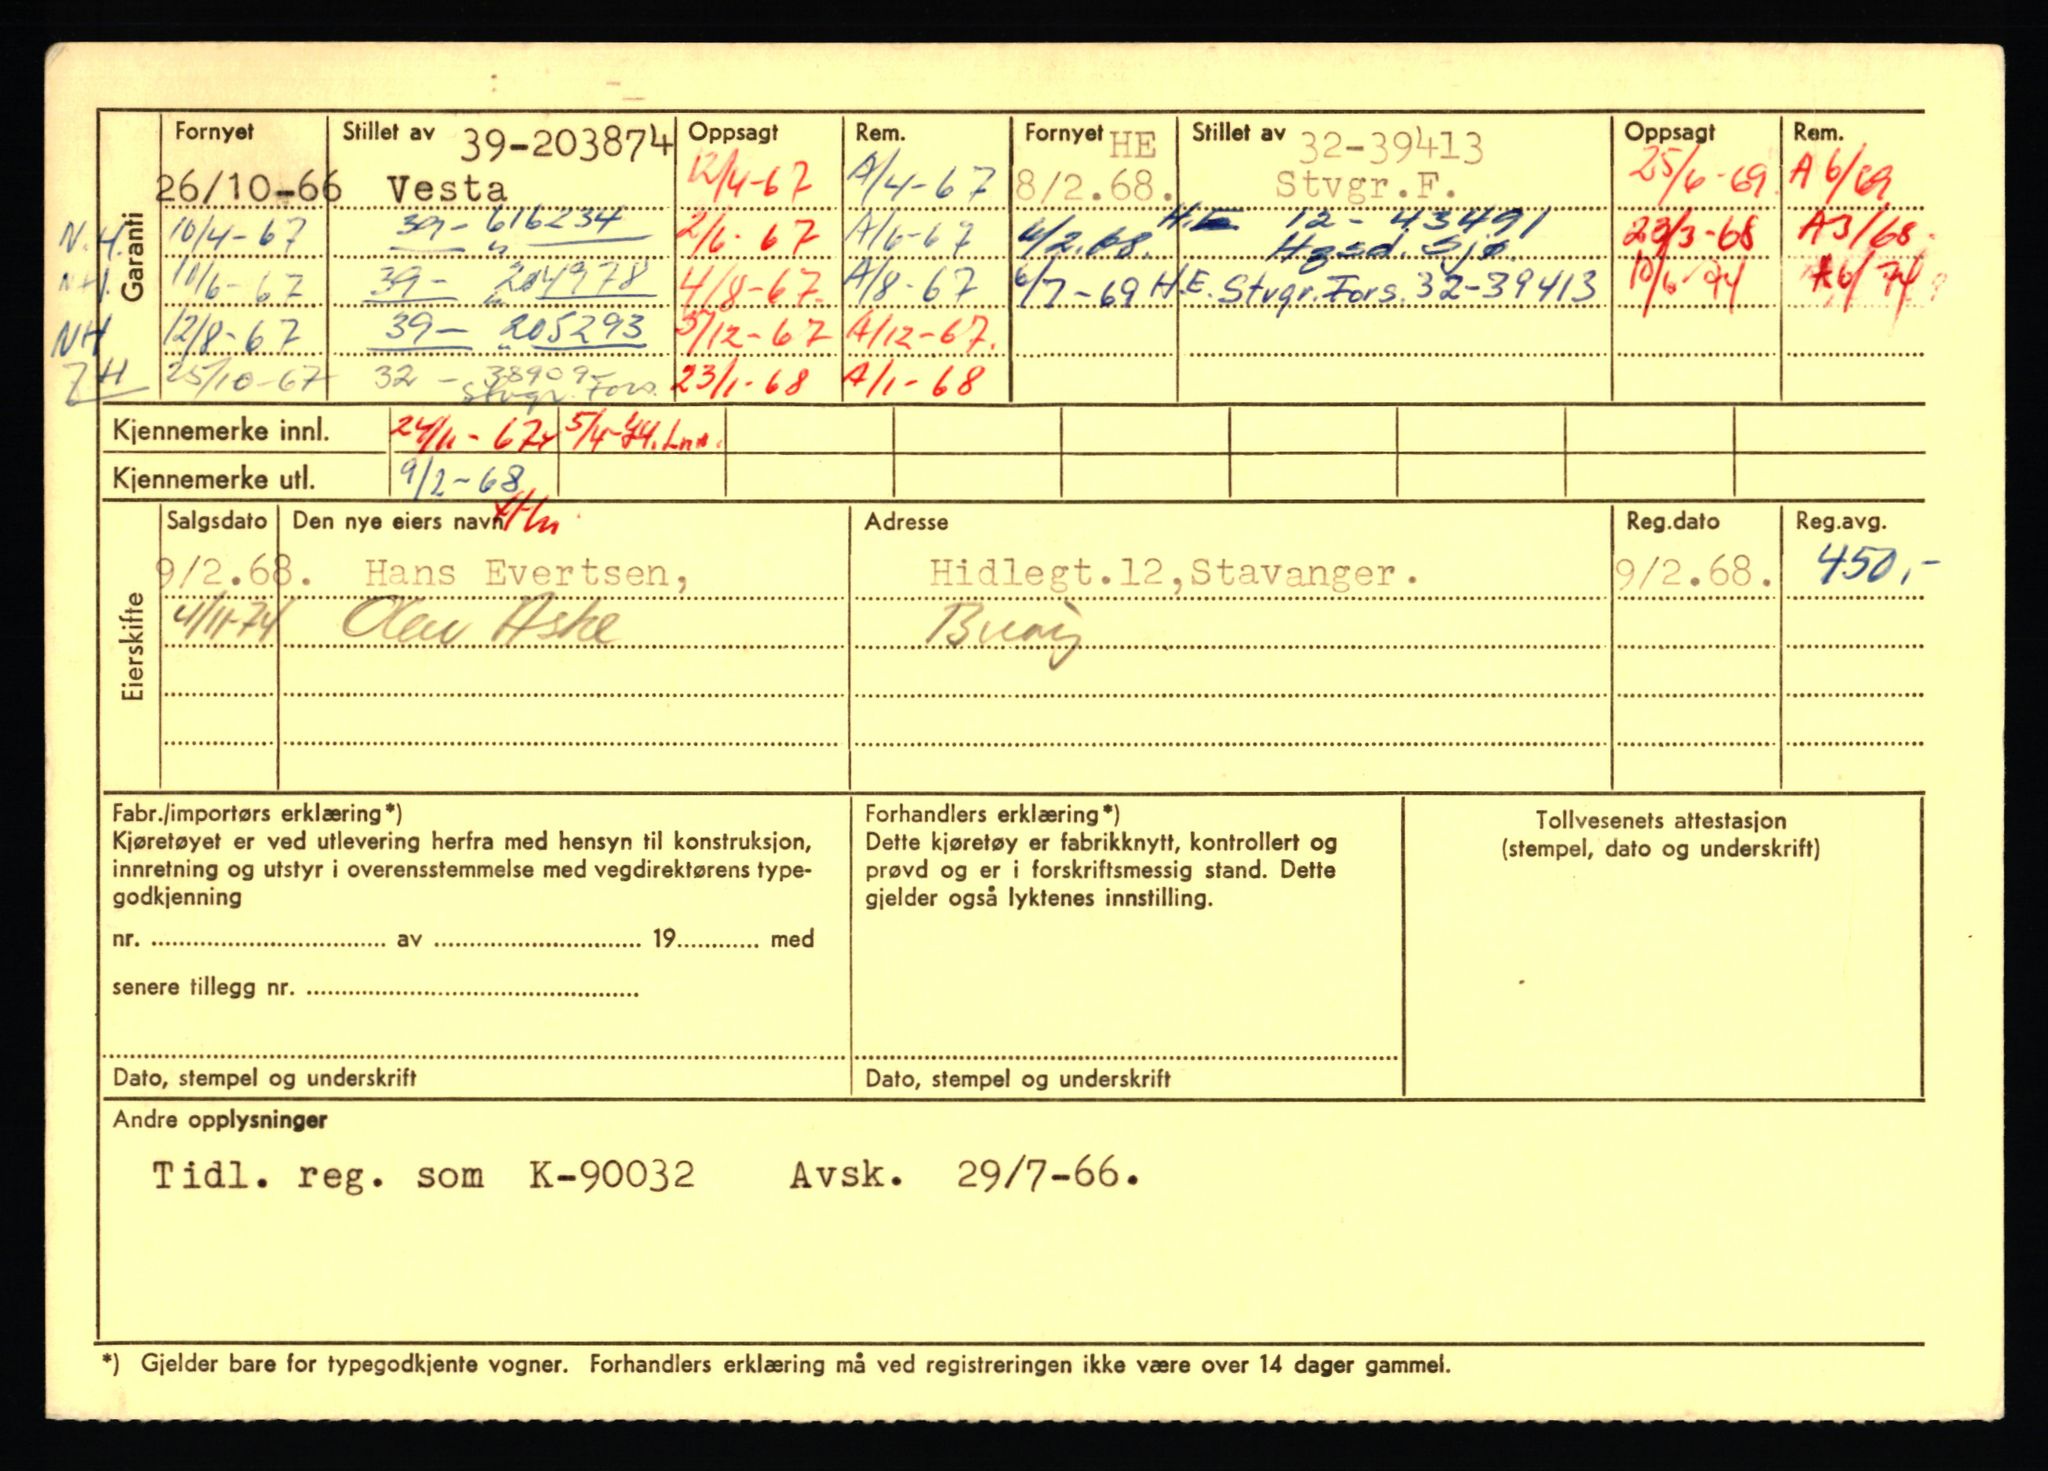 Garanti
Fornyet Stillet av 39-203874 Oppsagt Rem. Fornyet HE Stillet av 32-39413 Oppsagt Rem.
26/10-66 Vesta 12/4-67 A/4-67 8/2.68. Stvgr.F. 25/6-69 A 6/69
N.H. 10/4-67 39- 616234 2/6-67 A/6-67 6/2.68. H.E 12-43491 23/3-68 A3/68.
Hgsd. Sjø.
NH. 10/6-67 39- 204978 4/8-67. A/8-67 6/7-69 H.E. Stvgr.Fors. 32-39413 10/6-74 A6/74
NH 12/8-67 39- 205293 5/12-67 A/12-67.
ZH 25/10-67 32- 38909- 23/1-68 A/1-68
Stvgr. Fors.
Kjennemerke innl. 24/11-67 5/4-74.
Kjennemerke utl. 9/2-68
Eierskifte
Salgsdato Den nye eiers navn Adresse Reg.dato Reg.avg.
9/2.68. Hans Evertsen, Hidlegt.12,Stavanger. 9/2.68. 450,-
4/11-74 Olav Aske
Fabr./importørs erklæring*)
Kjøretøyet er ved utlevering herfra med hensyn til konstruksjon,
innretning og utstyr i overensstemmelse med vegdirektørens type-
godkjenning
nr. .................. av .................. 19............ med
senere tillegg nr. ..................
Dato, stempel og underskrift
Forhandlers erklæring*)
Dette kjøretøy er fabrikknytt, kontrollert og
prøvd og er i forskriftsmessig stand. Dette
gjelder også lyktenes innstilling.
Dato, stempel og underskrift
Tollvesenets attestasjon
(stempel, dato og underskrift)
Andre opplysninger
Tidl. reg. som K-90032 Avsk. 29/7-66.
*) Gjelder bare for typegodkjente vogner. Forhandlers erklæring må ved registreringen ikke være over 14 dager gammel.